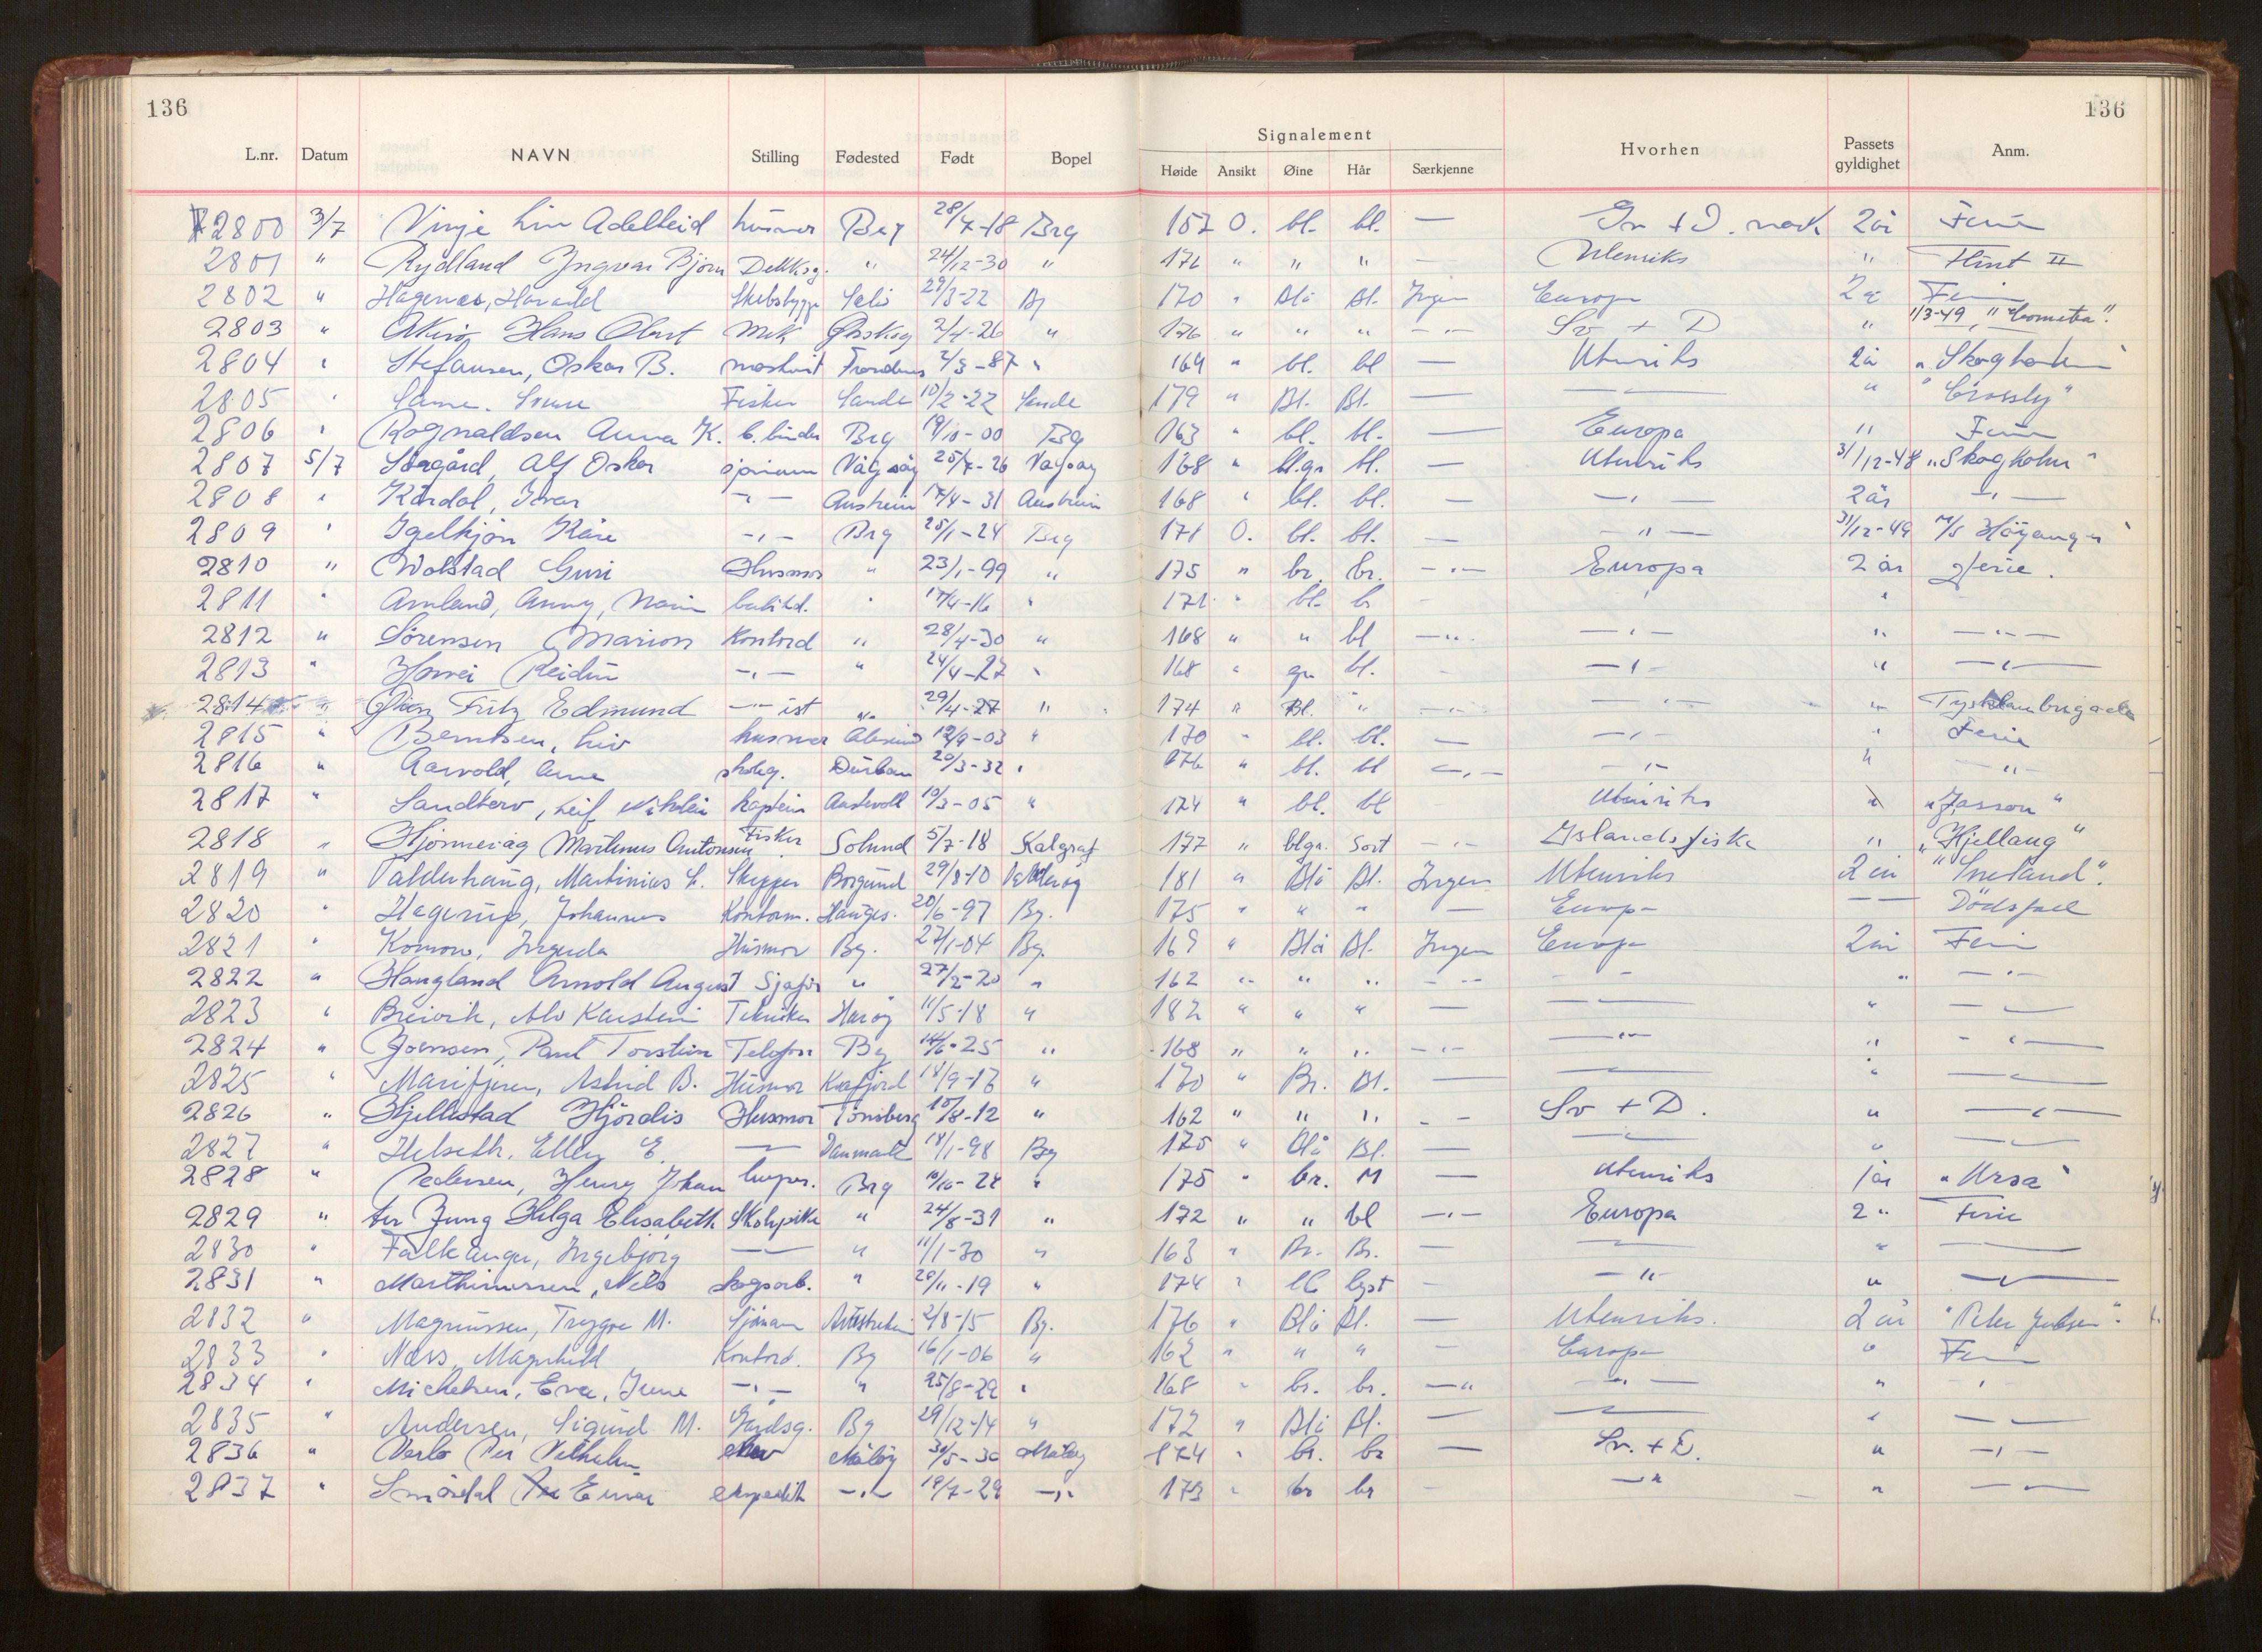 136
136
L.nr. Datum NAVN Stilling Fødested Født Bopel Signalement Høide Ansikt Øine Hår Særkjenne Hvorhen Passets gyldighet Anm.
2800 3/7 Vinje Liv Adelheid husmor Brg 28/7-18 Brg 157 O. bl. bl. — 2 år Ferie
2801 " Rydland Ingvar Bjørn " 24/12-30 " 176 " " " — Utenriks " Flint II
2802 " Hagenæs, Harald 29/3-22 Bg 170 " Blå Bl. Ingen Europa 2 år Ferie
2803 " Hans Olart Mek Ørskog 2/4-26 " 176 " " " —"— Sv + D " 1/3-49 "Cometa".
2804 " Stefansen, Oskar B. maskinist 2/3-87 " 164 " bl. bl — Utenriks 2 år "Skogholm"
2805 " Fisker Sande 10/2-22 Sande 179 " Bl. Bl. — — " "Crossby"
2806 " Rognaldsen Anna K. Brg 19/10-00 Brg 163 " bl. bl. — Europa " Ferie
2807 5/7 Alf Oskar sjømann Vågsøy 25/7-26 Vågsøy 168 " bl.gr bl. — Utenriks 31/12-48 "Skogholm"
2808 " Kårdal, Ivar —"— Austrheim 17/4-31 Austrheim 168 " bl. bl. — —"— 2 år —"—
2809 " Kåre —"— Brg 25/1-24 Brg 171 O. bl. bl. — —"— 31/12-49 M/S Höyanger"
2810 " Wolstad Guri Husmor " 23/1-99 " 175 " br. br. —"— Europa 2 år ferie.
2811 " Amland, Anny, " 17/4-16 " 171 " bl. br — " "
2812 " Sörensen Marion Kontord " 28/4-30 " 168 " " bl —"— —"— " —"—
2813 " Reidun —"— " 24/4-27 " 168 " gr. bl. - —"— " —"—
2814 " Øien Fritz Edmund —"— ist " 29/4-27 " 174 " Bl. " —"— —"— "
2815 " Berntsen, Liv husmor Ålesund 12/9-03 " 170 " bl. bl. — —"— " Ferie
2816 " Aarvold, Arne skoleg. Durban 20/3-32 " 176 " bl. bl —"— —"— " —"—
2817 " Leif kaptein Austevoll 10/3-05 " 174 " bl. bl - Utenriks " "Jasson"
2818 " Martinus Antonsen Fisker Solund 5/7-18 177 " blgr. Sort —"— Islandsfiske " "Hjellaug"
2819 " Valderhaug, Martinius L. Skipper Borgund 29/8-10 181 " Blå Bl. Ingen Utenriks 2 år
2820 " Hagerup, Johannes Kontorm. Hauges. 20/6-97 Bg. 175 " " " — Europa — Dödsfall
2821 " Husmor Bg. 27/1-04 Bg. 169 " Blå Bl. Ingen Europa 2 år Ferie
2822 " Haugland Arnold August Sjåfør " 27/2-20 " 162 " " " —"— —"— " —"—
2823 " Breivik, Alv Karstein Tekniker Harøy 11/5-18 " 182 " " " — — " —
2824 " Joensen, Paul Torstein Telefon Bg 14/6-25 " 168 " " " —"— —"— " —"—
2825 " Marifjæren, Astrid B. Husmor 18/9-13 " 170 " Br. Bl. — — " —
2826 " Hjellestad Hjördis Husmor Tönsberg 10/8-12 " 162 " " " — Sv + D. " —"—
2827 " Helseth, Elley E. — Danmark 18/1-98 Bg 175 " Blå Bl. — — " —
2828 " Pedersen, Henry Johan Brg 10/10-28 " 175 " br. M — Utenriks 1 år "Ursa"
2829 " ter Jung Helga Elisabeth Skolepike " 24/8-31 " 172 " " bl —"— Europa 2 " Ferie
2830 " Falkanger, Ingebjörg — " 11/1-30 " 163 " Br. Br. — — " —
2831 " Marthinussen, Nils skogsarb. " 20/11-19 " 174 " bl lyst - —"— " —
2832 " Magnussen, Trygve M. Sjömann Austrheim 2/8-15 Bg. 176 " Blå Bl. — Utenriks. 2 år "Peter Jebsen".
2833 " Næss, Magnhild Kontord. Bg 16/1-06 " 162 " " " — Europa " Ferie
2834 " Michelsen, Eva, June —"— " 25/8-29 " 168 " br. br. —"— —"— " "
2835 " Andersen, Sigurd M. Gårdsg. Bg 29/12-14 " 172 " Blå Bl. — — " —
2836 " Per Vilhelm elev Måløy 30/5-30 Måløy 174 " br. br — Sv. + D. " —"—
2837 " Smördal Einar —"— 19/7-29 —"— 173 " br br - —"— " —